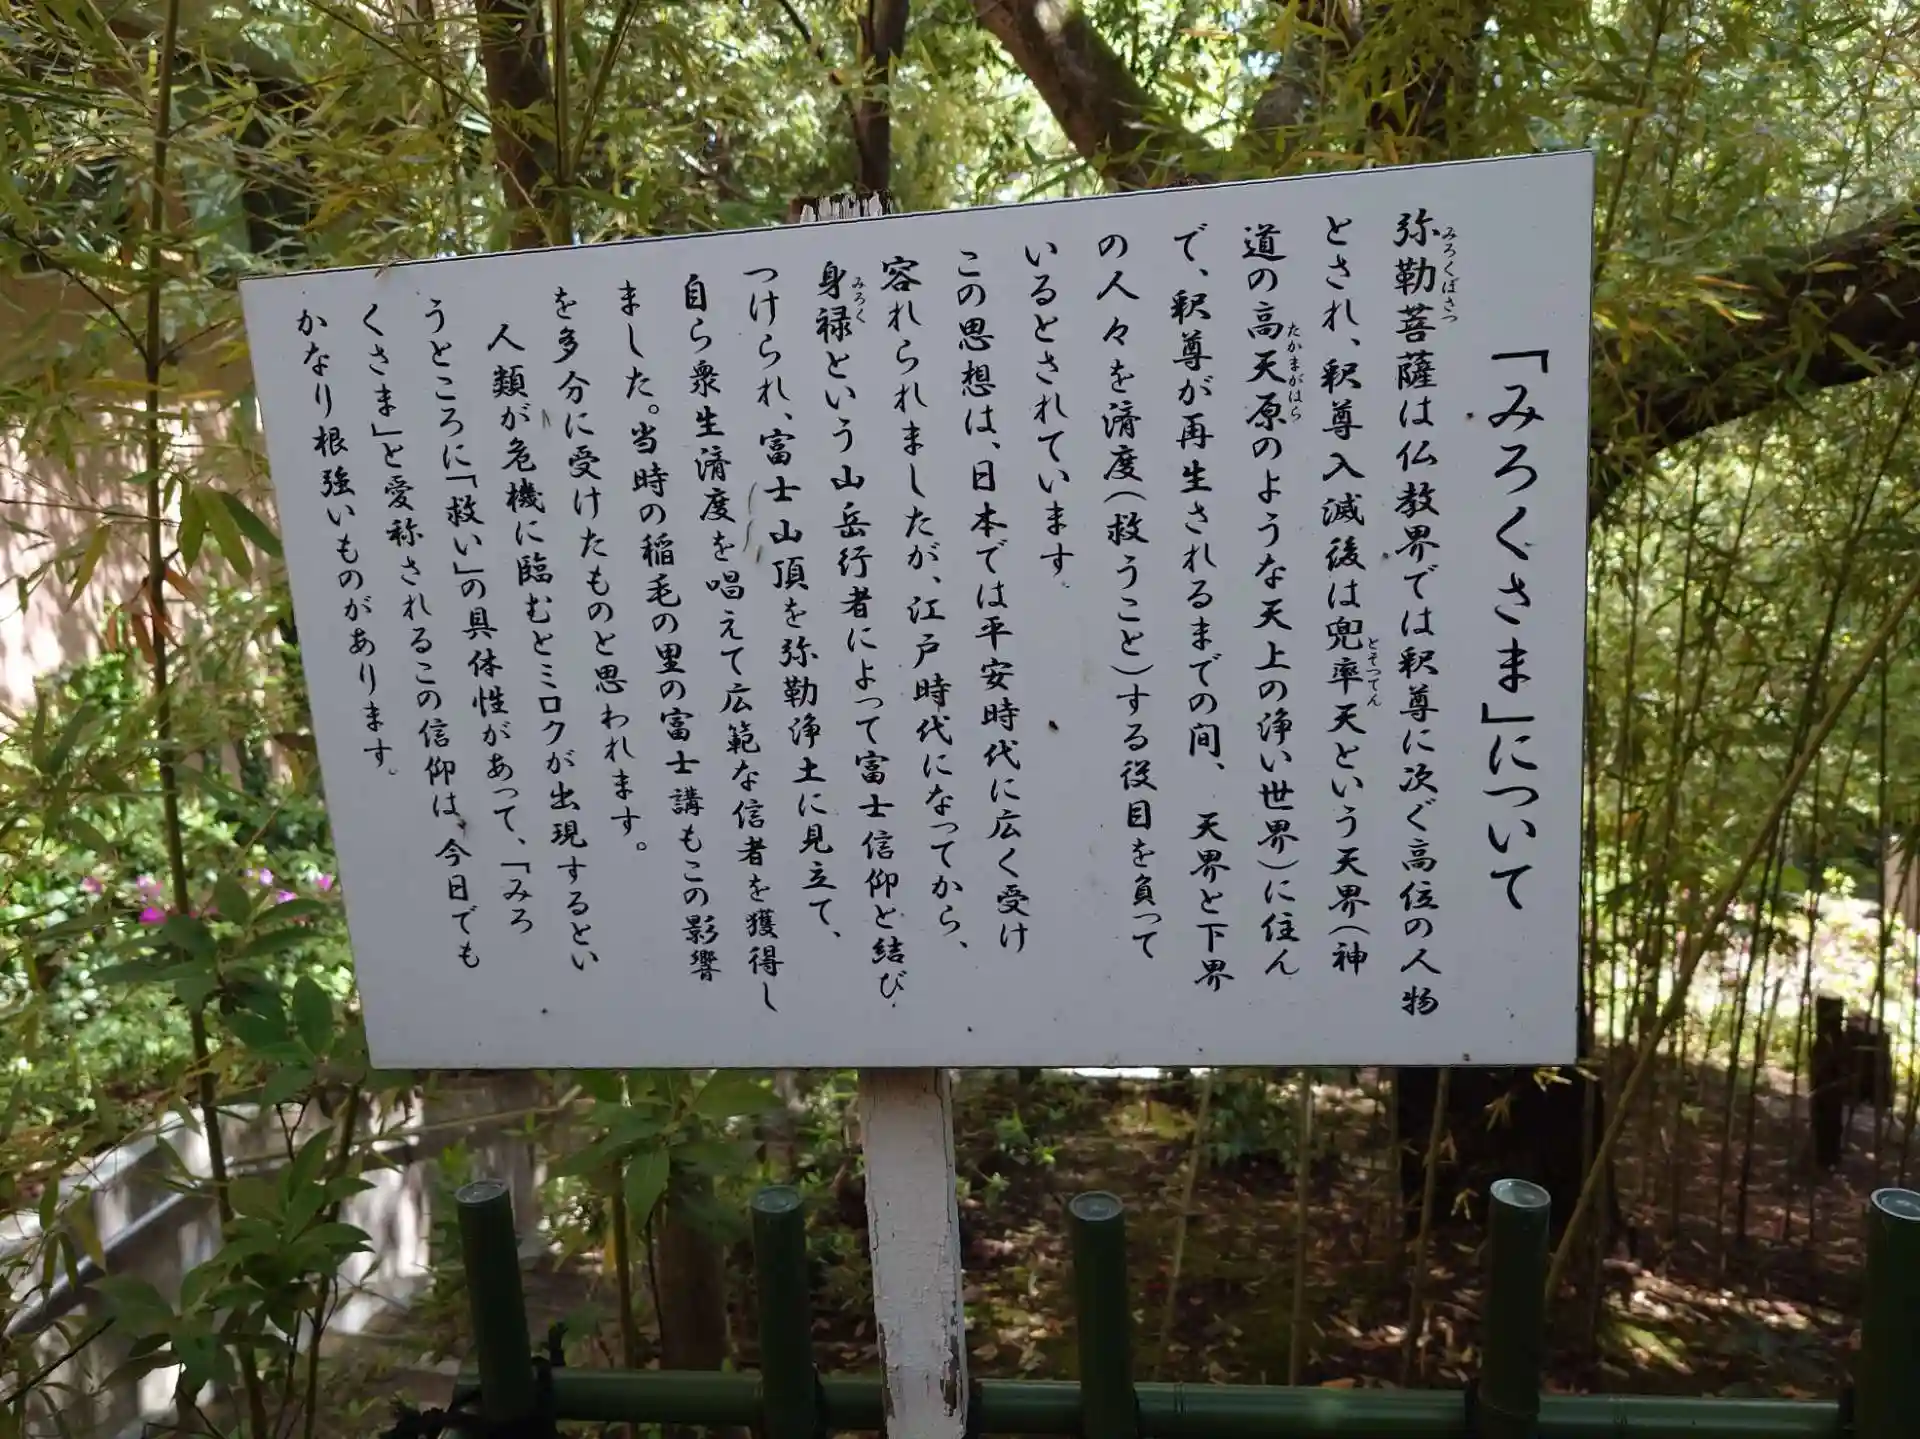 「みろくさま」について
弥勒菩薩は仏教界では釈尊に次ぐ高位の人物
みろくぼさつ
とされ、釈尊入滅後は兜率天という天界(神
とそつてん
道の高天原のような天上の浄い世界)に住ん
たかまがはら
で、釈尊が再生されるまでの間、天界と下界
の人々を済度(救うこと)する役目を負って
いるとされています。
この思想は、日本では平安時代に広く受け
容れられましたが、江戸時代になってから、
身禄という山岳行者によって富士信仰と結び
みろく
つけられ、富士山頂を弥勒浄土に見立て、
自ら衆生済度を唱えて広範な信者を獲得し
ました。当時の稲毛の里の富士講もこの影響
を多分に受けたものと思われます。
人類が危機に臨むとミロクが出現するとい
うところに「救い」の具体性があって、「みろ
くさま」と愛称されるこの信仰は、今日でも
かなり根強いものがあります。